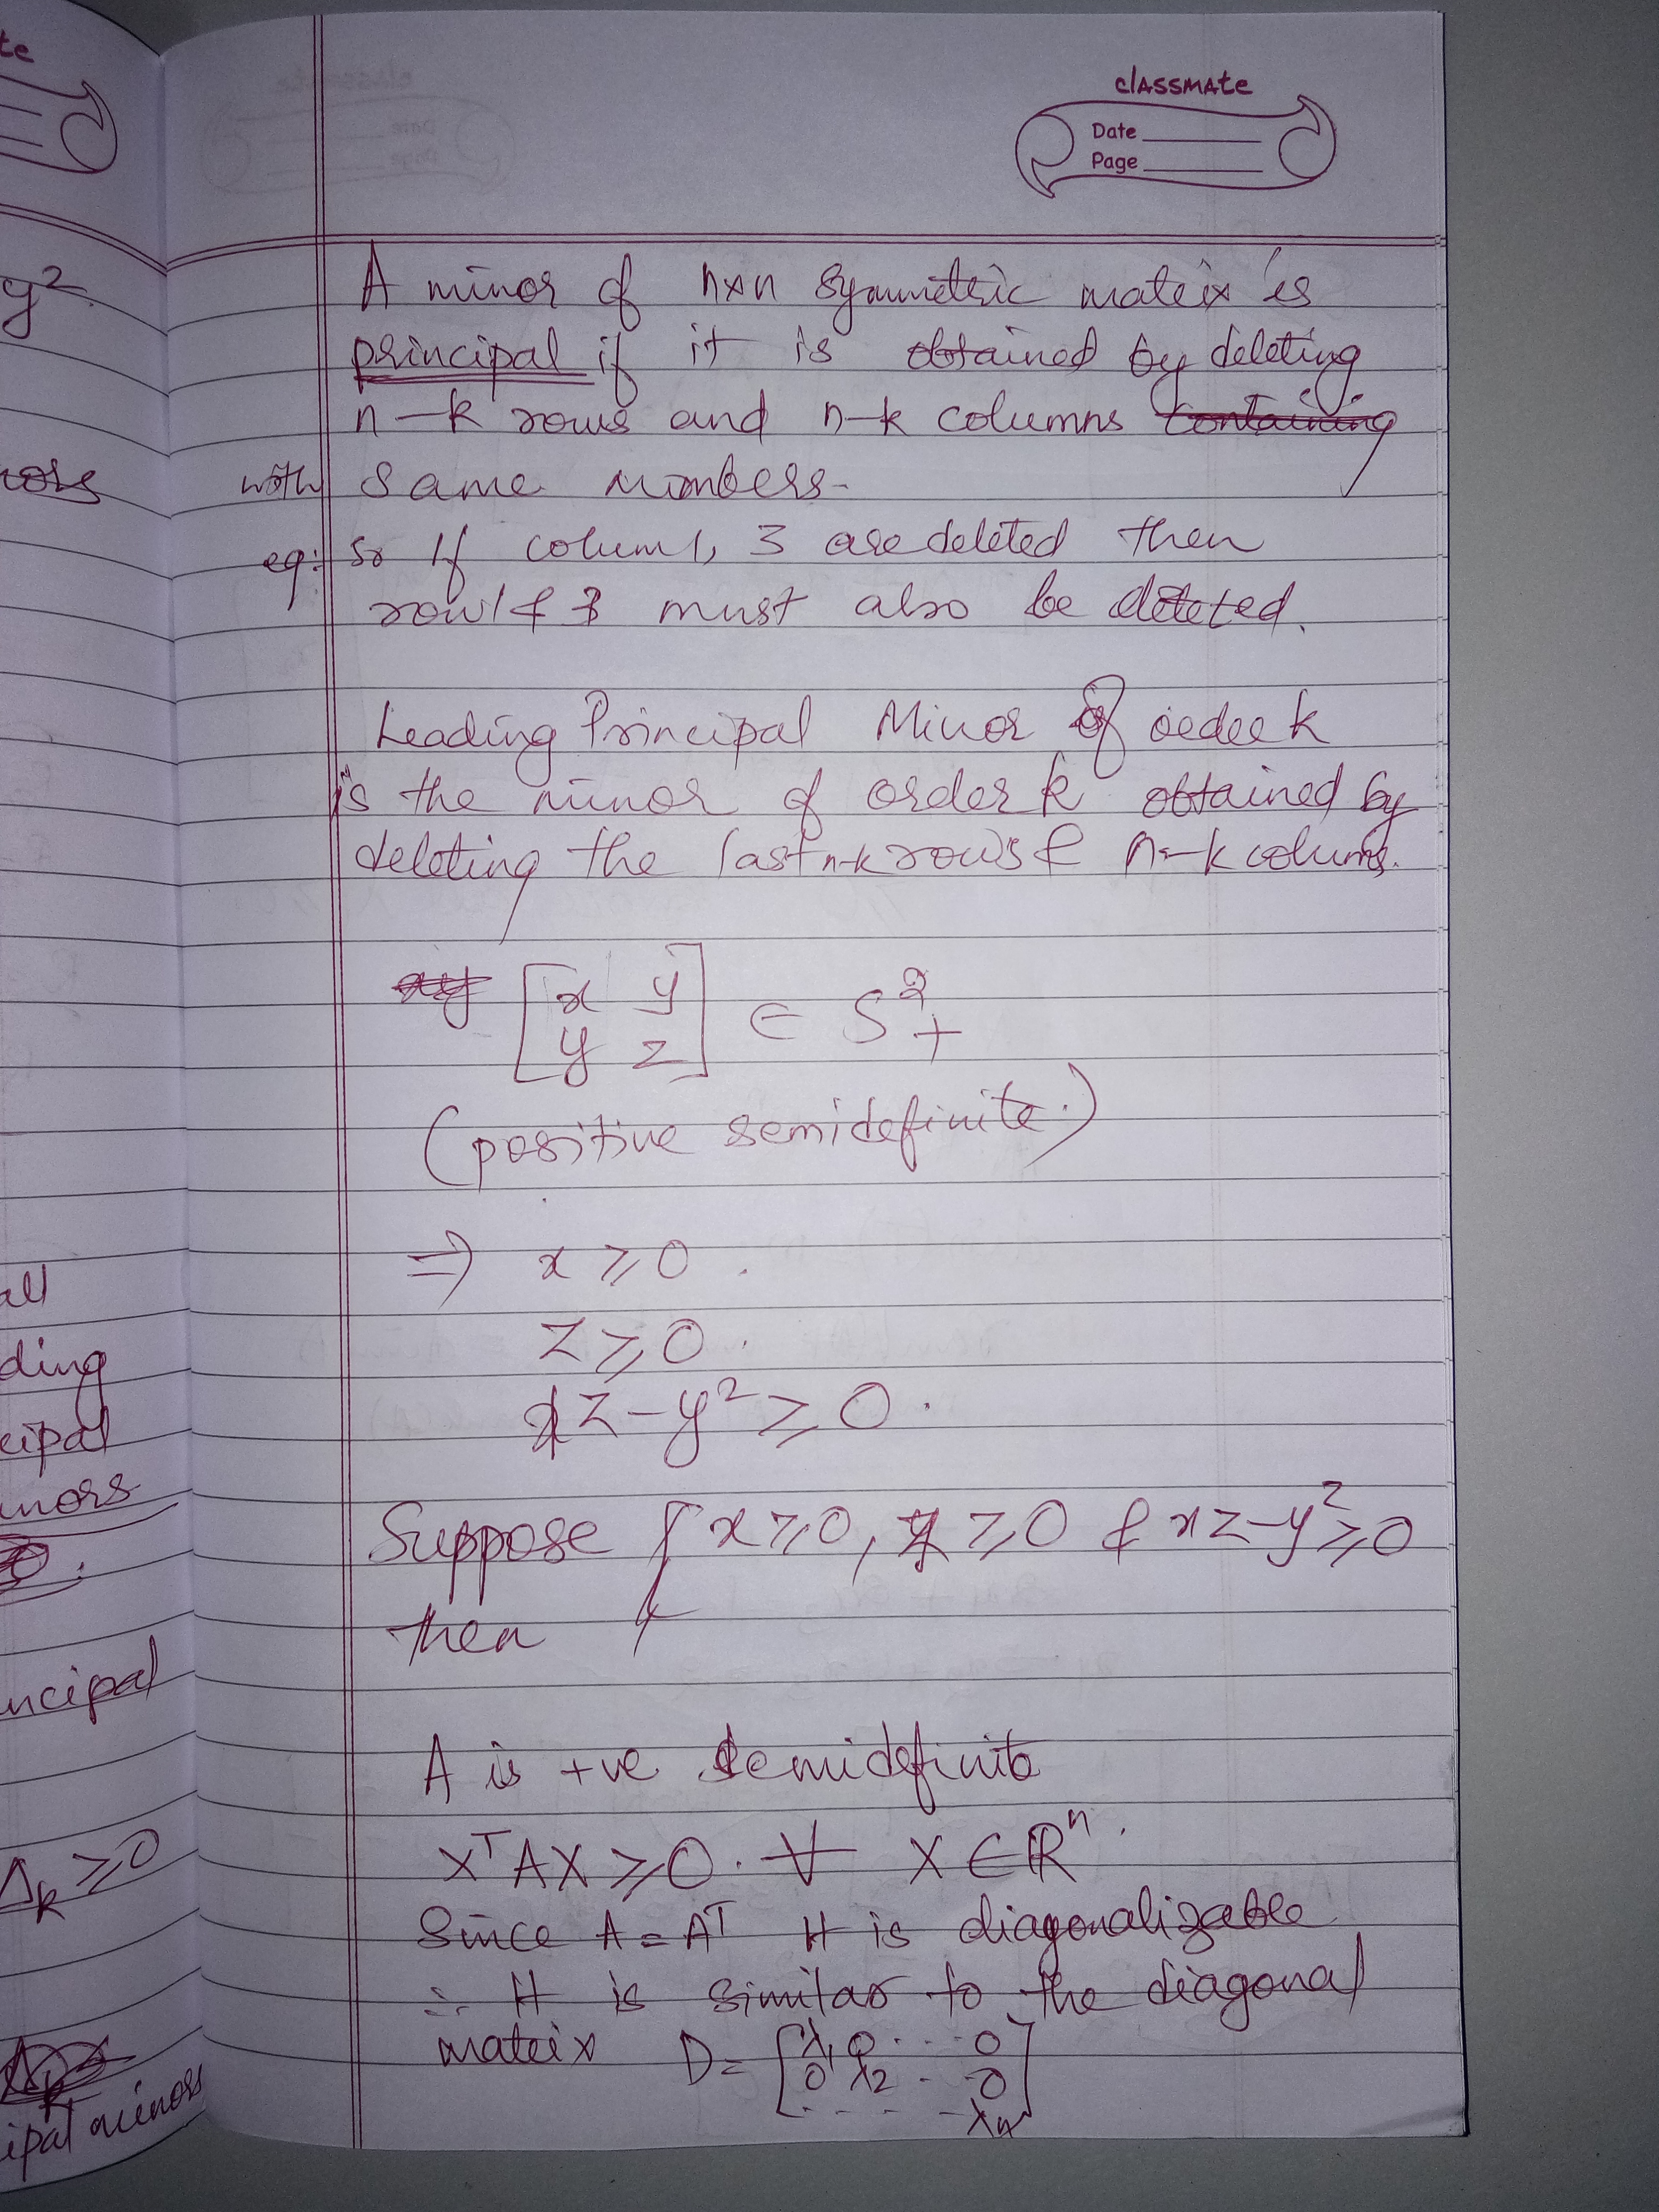 te
classmate
Date
Page
y².
A minor of n×n symmetric matrix is
principal if it is obtained by deleting
n-k rows and n-k columns containing
with same numbers.
eg: So If colum 1, 3 are deleted then
row 1 & 3 must also be deleted.
Leading Principal Minor of order k
is the minor of order k obtained by
deleting the last n-k rows & n-k colums.
[x y
y z] ∈ S²₊
(positive semidefinite.)
⇒ x ≥ 0.
z ≥ 0.
xz - y² ≥ 0.
Suppose x ≥ 0, ≥ 0 & xz - y² ≥ 0
then
all
ding
cipal
inors
ncipal
A is +ve semidefinite
Δk ≥ 0
X^T A X ≥ 0. ∀ X ∈ R^n.
Since A = A^T It is diagonalizable
∴ It is similar to the diagonal
matrix D = [λ₁ 0 ... 0
0 λ₂ .. 0
. . . . λn]
ipal minors